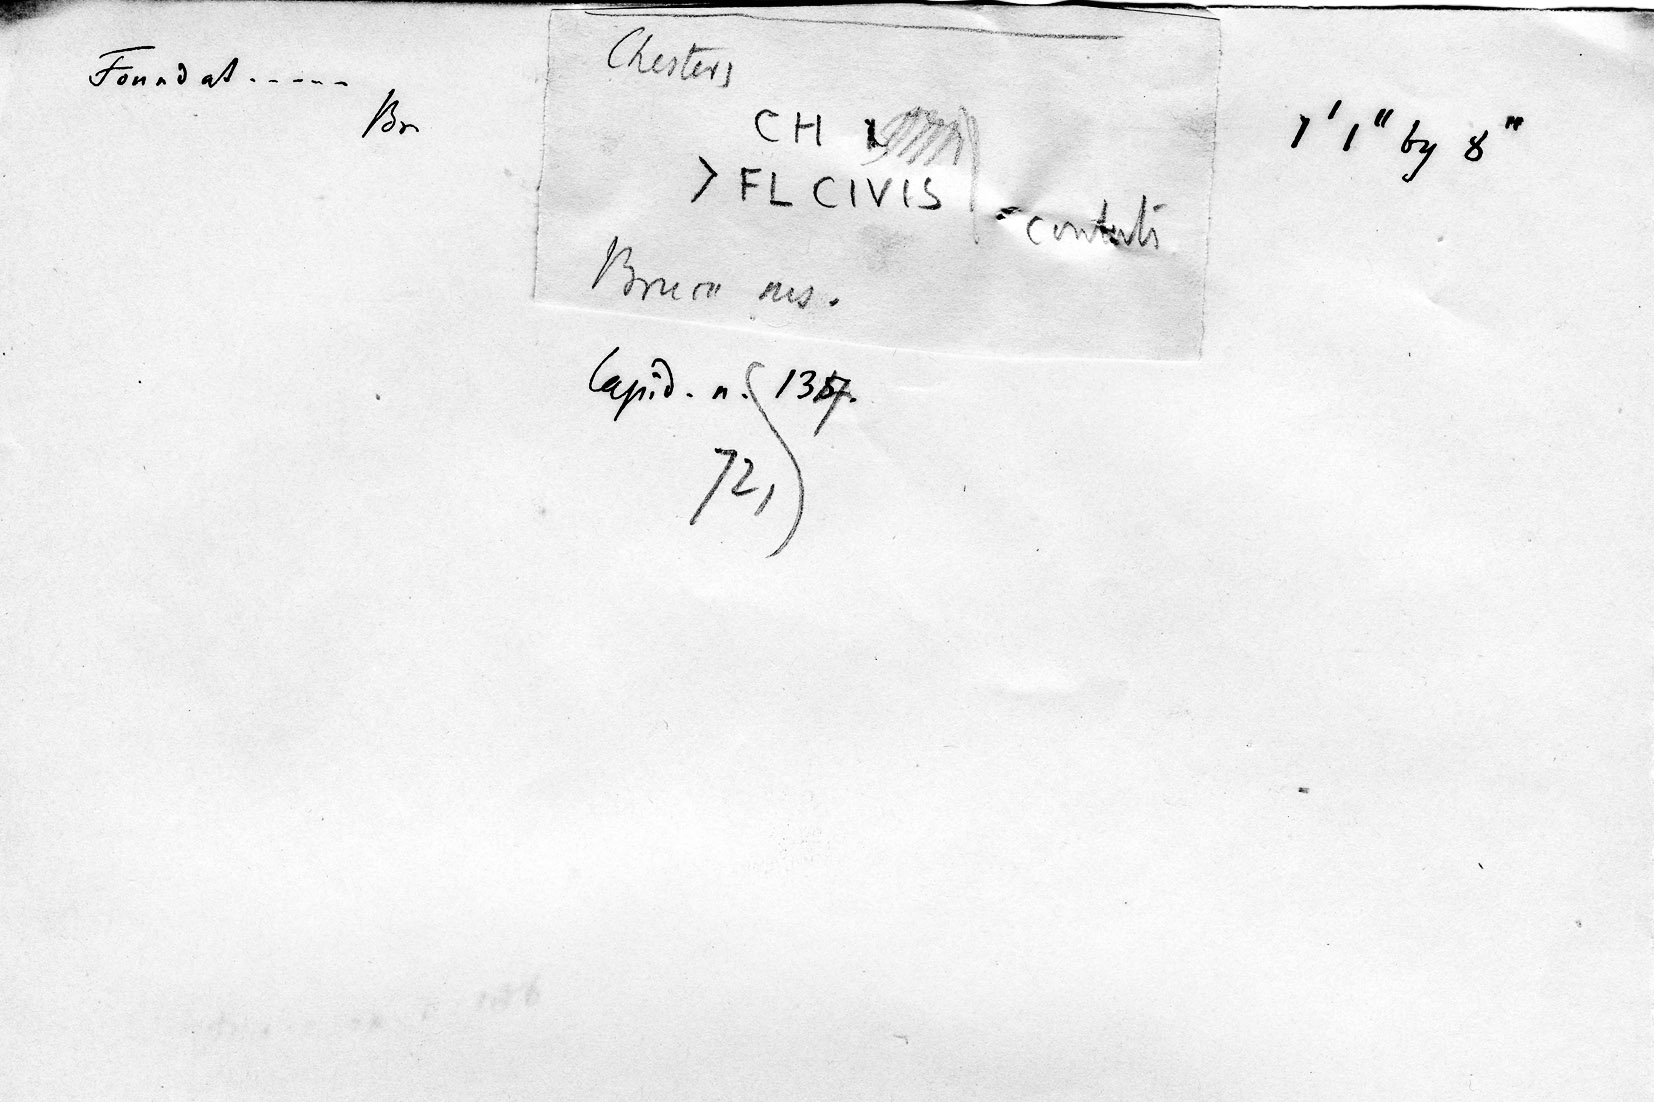 Found at -----
Br
Chesters
CH
> FL CIVIS
Bruce ms.
1' 1" by 8"
Lapid. n. 137.
721